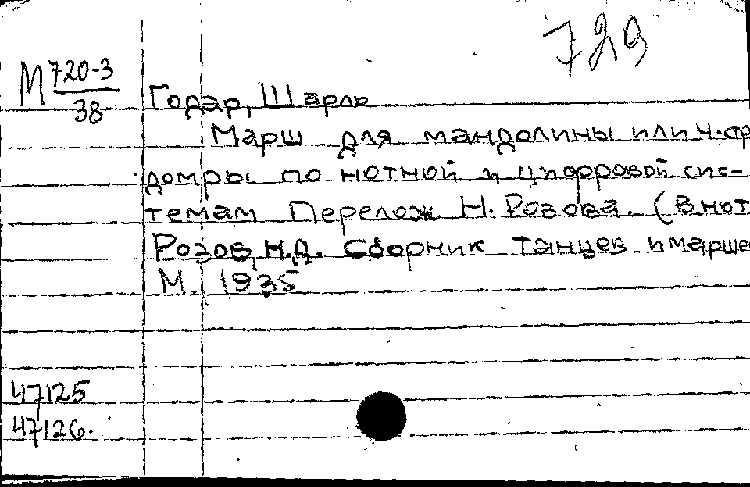 729
М 720-3
38
Годар, Шарль
Марш для мандолины или 4-стр
домры по нотной и цифровой сис-
темам Перелож Н. Розова (В нот
Розов, Н.А. Сборник танцев и марше
М. 1935
47125
47126.